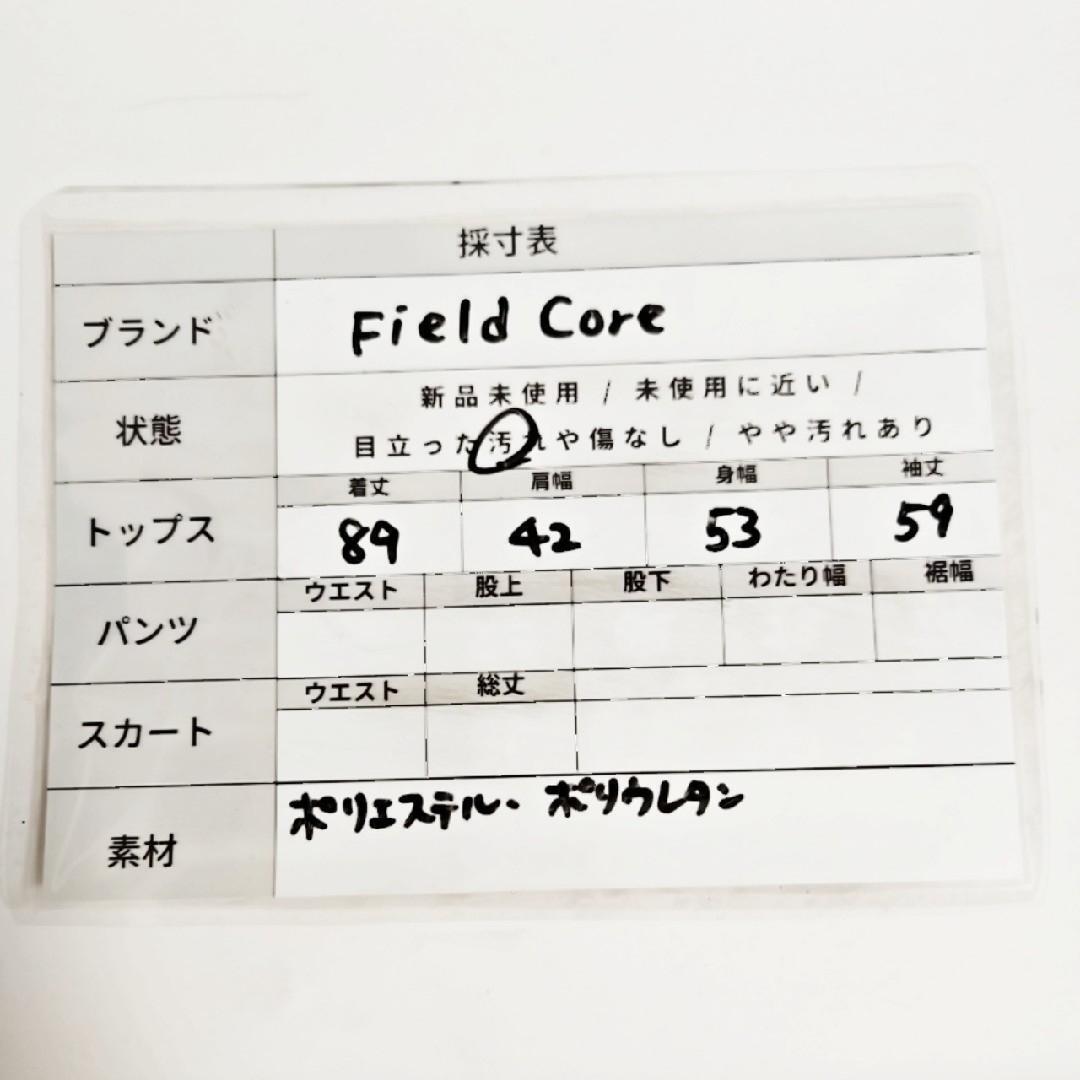 採寸表
ブランド Field Core
状態 新品未使用 / 未使用に近い /
目立った汚れや傷なし / やや汚れあり
着丈 肩幅 身幅 袖丈
トップス 89 42 53 59
ウエスト 股上 股下 わたり幅 裾幅
パンツ
ウエスト 総丈
スカート
素材 ポリエステル、ポリウレタン